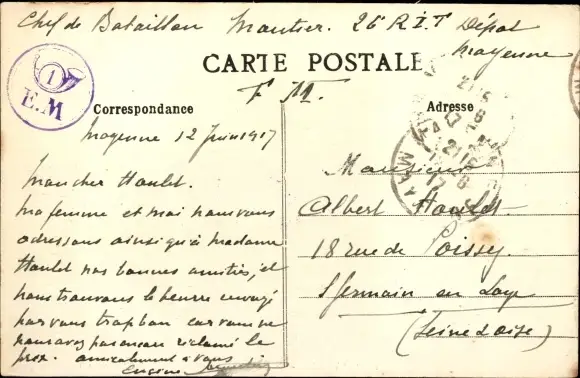 Chef de Bataillon Mautier. 26e R.I.T Dépot
Mayenne
CARTE POSTALE
F M.
1
E.M
Correspondance
Adresse
Mayenne 12 Juin 1917
Mon cher Houlet.
ma femme et moi nous vous
adressons ainsi qu'à madame
Houlet nos bonnes amitiés, et
nous trouvons le beurre envoyé
par vous trop bon car vous ne
nous avez pas encore réclamé le
prix. amicalement à vous
Eugène
Monsieur
Albert Houlet.
18 rue de Poissy.
St Germain en Laye
(Seine et Oise)